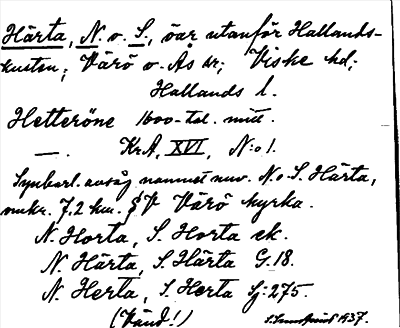 Härta, N. o. S., öar utanför Hallands-
kusten; Värö o. Ås sr; Viske hd;
Hallands l.
Hetteröne 1600-tal. mitt.
—. Kr.A, XVI, N:o 1.
Synbarl. avsåg namnet nuv. N. o. S. Härta,
omkr. 7,2 km. SV Värö kyrka.
N. Horta, S. Horta ek.
N. Härta, S. Härta G. 18.
N. Herta, S. Herta Sj: 275.
(Vänd!) 1937.